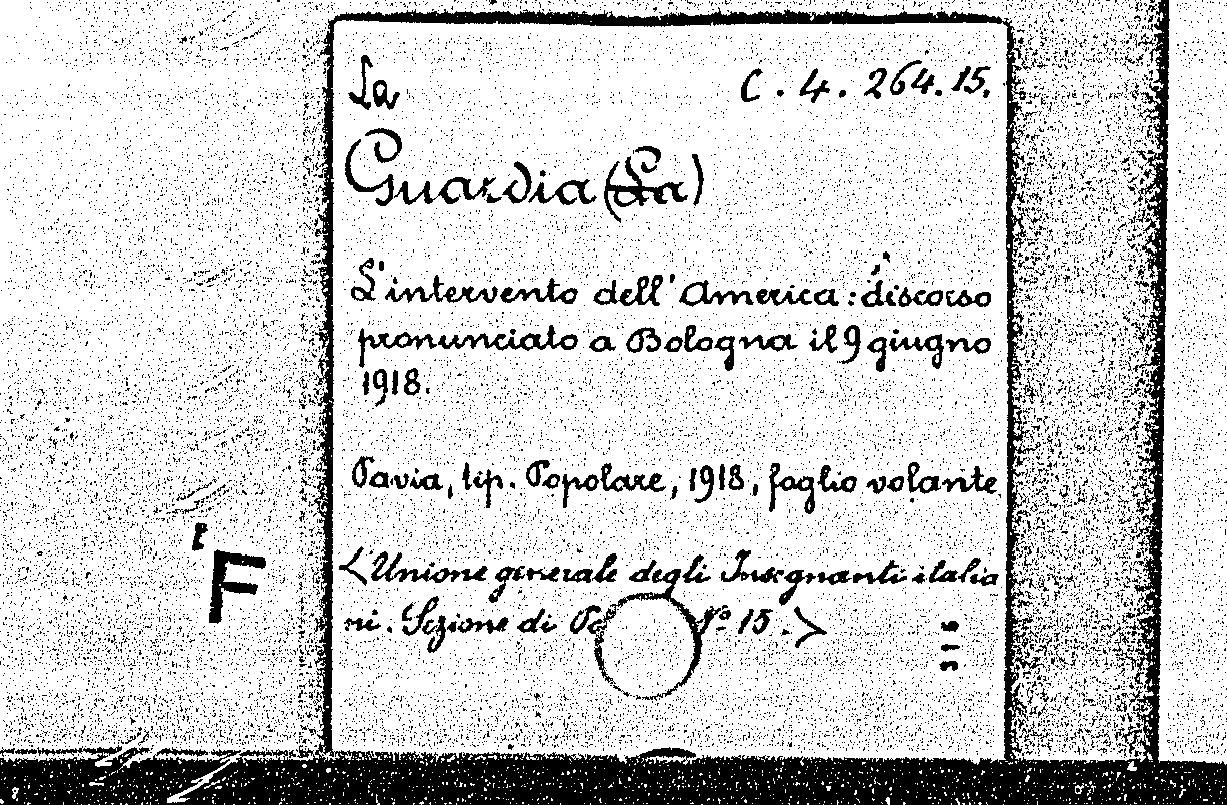 La C. 4. 264. 15.
Guardia (La)
L'intervento dell'America: discorso
pronunciato a Bologna il 9 giugno
1918.
Pavia, tip. Popolare, 1918, foglio volante
<Unione generale degli Insegnanti italia
ni. Sezione di Pa Nº 15.>
F